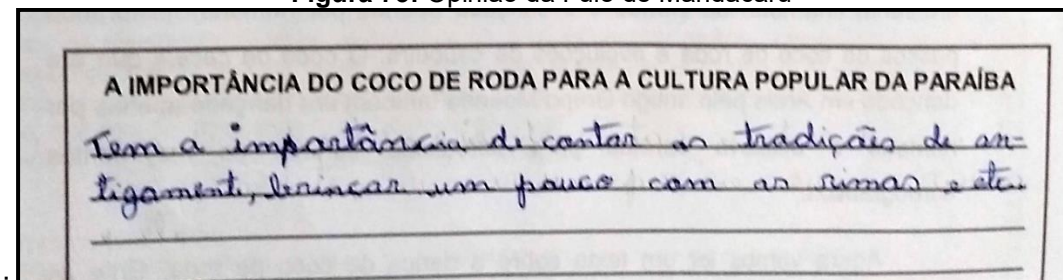 A IMPORTÂNCIA DO COCO DE RODA PARA A CULTURA POPULAR DA PARAÍBA
Tem a importância de contar as tradições de an-
tigamente, brincar um pouco com as rimas e etc.